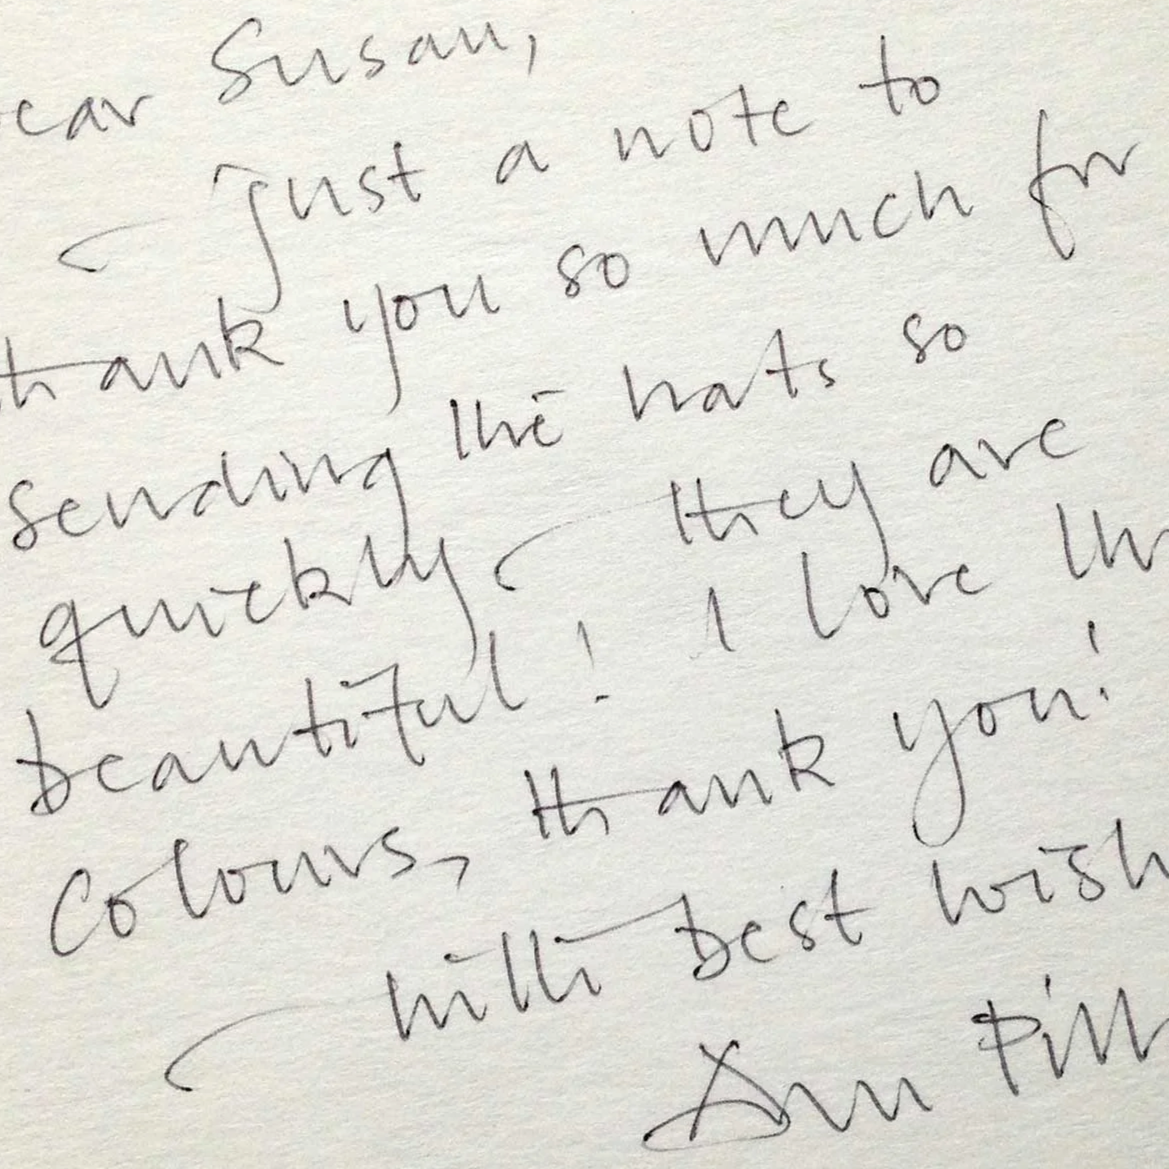 ear Susan,
just a note to
thank you so much for
sending the hats so
quickly they are
beautiful! I love th
Colours, thank you!
with best wish
Ann Pill